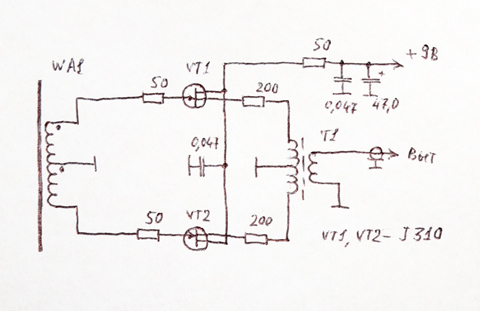 50
+9В
WA1
VT1
50
200
0,047
47,0
+
0,047
T1
Вых
50
VT2
200
VT1, VT2 - J310